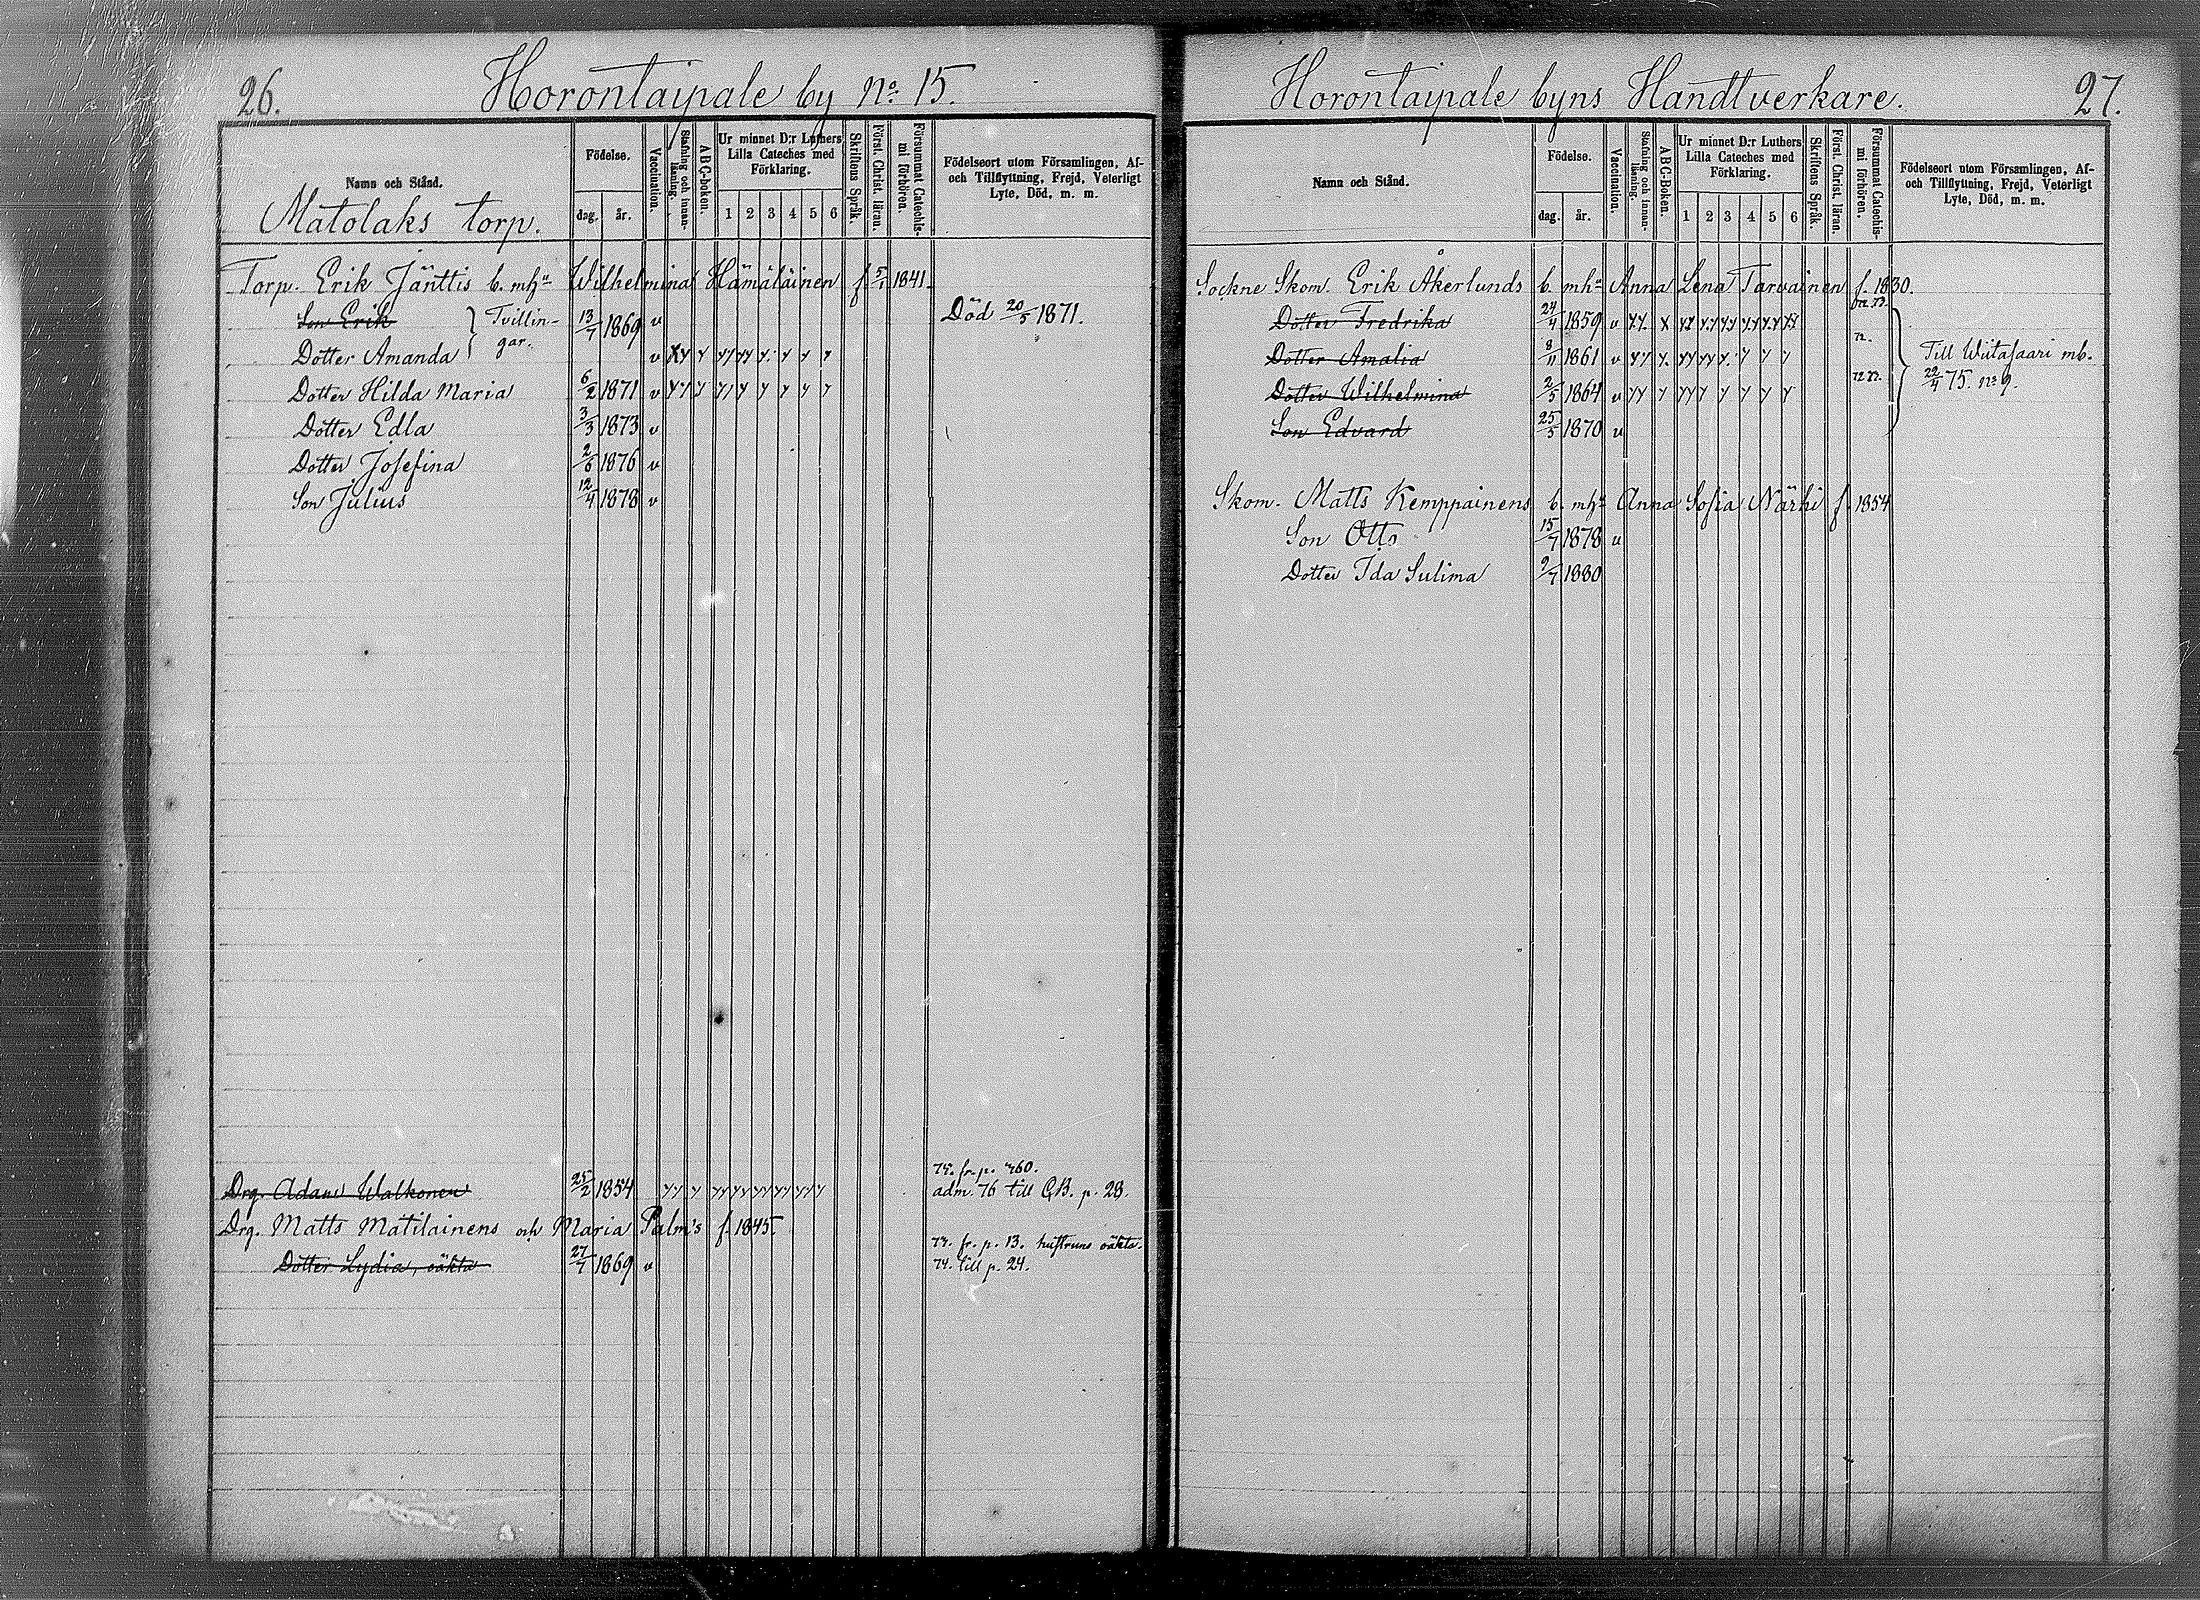 26.
Horontaipale by No. 15.
Namn och Stånd.
Födelse.
dag.
år.
Vaccination.
Stafning och innan-
läsning.
A B C-boken.
Ur minnet D:r Luthers
Lilla Cateches med
Förklaring.
1 2 3 4 5 6
Skriftens Språk.
Först. Christ. läran.
Försummat Catechis-
mi förhören.
Födelseort utom Församlingen, Af-
och Tillflyttning, Frejd, Veterligt
Lyte, Död, m. m.
Matolaks torp.
Torp. Erik Jänttis b. mha Wilhelmina Hämäläinen f. 5/1 1841.
Son Erik } Tvillin- 13/7 1869 v Död 20/5 1871.
gar.
Dotter Amanda v
Dotter Hilda Maria 6/2 1871 v
Dotter Edla 3/3 1873 v
Dotter Josefina 2/6 1876 v
Son Julius 12/4 1878 v
75. fr. p. 460.
Drg. Adam Walkonen 25/2 1854 adm. 76 till QB. p. 28.
Drg. Matts Matilainens och Maria Palm's f. 1845.
73. fr. p. 13. hustruns oäkta.
Dotter Lydia, oäkta 27/7 1869 v 74. till p. 24.
27.
Horontaipale byns Handtverkare.
Namn och Stånd.
Födelse.
dag.
år.
Vaccination.
Stafning och innan-
läsning.
A B C-Boken.
Ur minnet D:r Luthers
Lilla Cateches med
Förklaring.
1 2 3 4 5 6
Skriftens Språk.
Först. Christ. läran.
Försummat Catechis-
mi förhören.
Födelseort utom Församlingen, Af-
och Tillflyttning, Frejd, Veterligt
Lyte, Död, m. m.
Sockne Skom. Erik Åkerlunds b. mha Anna Lena Tarvainen f. 1830.
Dotter Fredrika 24/4 1859 v 72. 73.
Dotter Amalia 8/11 1861 v 72. Till Wiitasaari mb.
Dotter Wilhelmina 2/5 1864 v 72 73. 22/4 75. no 9.
Son Edvard 25/5 1870 v
Skom. Matts Kemppainens b. mha Anna Sofia Närhi f. 1854
Son Otto 15/7 1878 v
Dotter Ida Sulima 9/7 1880